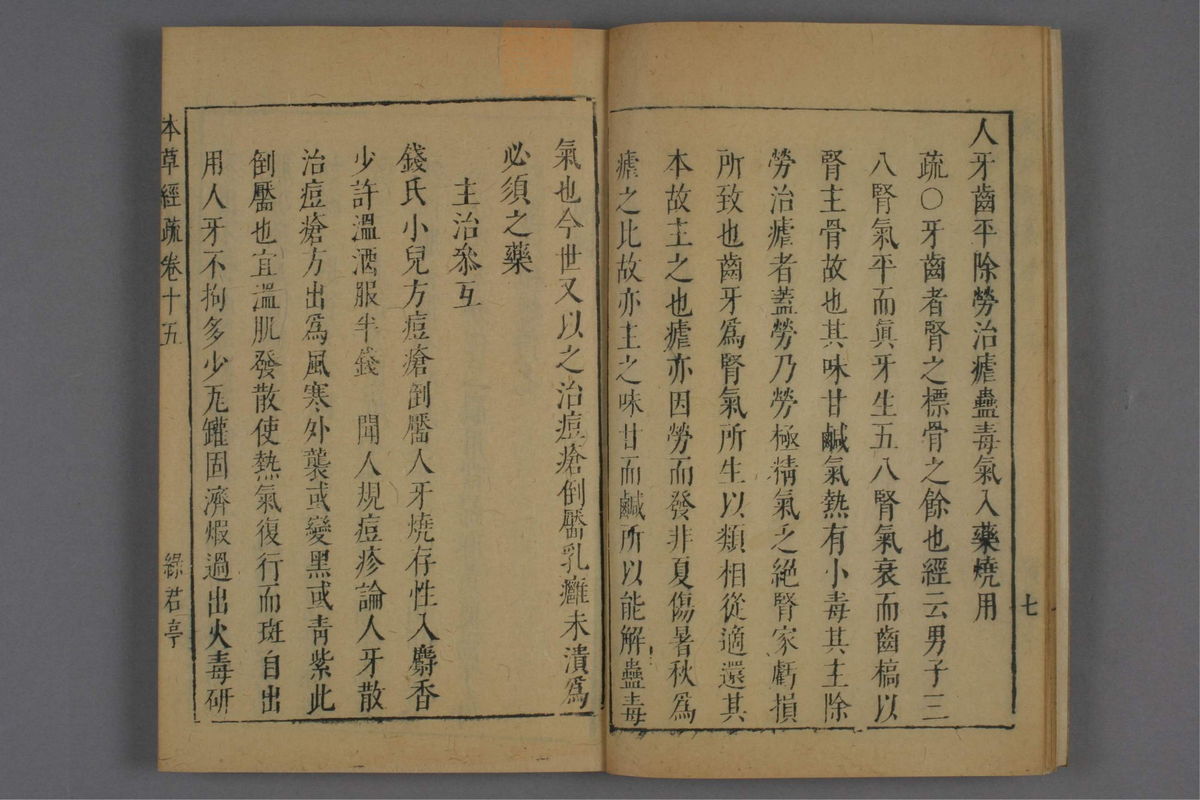 人牙齒平除勞治瘧蠱毒氣入藥燒用
疏○牙齒者腎之標骨之餘也經云男子三
八腎氣平而眞牙生五八腎氣衰而齒槁以
腎主骨故也其味甘鹹氣熱有小毒其主除
勞治瘧者蓋勞乃勞極精氣乏絕腎家虧損
所致也齒牙爲腎氣所生以類相從適還其
本故主之也瘧亦因勞而發非夏傷暑秋爲
瘧之比故亦主之味甘而鹹所以能解蠱毒
七
氣也今世又以之治痘瘡倒黶乳癰未潰爲
必須之藥
主治叅互
錢氏小兒方痘瘡倒黶人牙燒存性入麝香
少許溫酒服半錢 聞人規痘疹論人牙散
治痘瘡方出爲風寒外襲或變黑或靑紫此
倒黶也宜溫肌發散使熱氣復行而斑自出
用人牙不拘多少瓦罐固濟煆過出火毒研
本草經疏卷十五
綠君亭